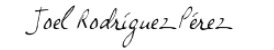 Joel Rodríguez Pérez